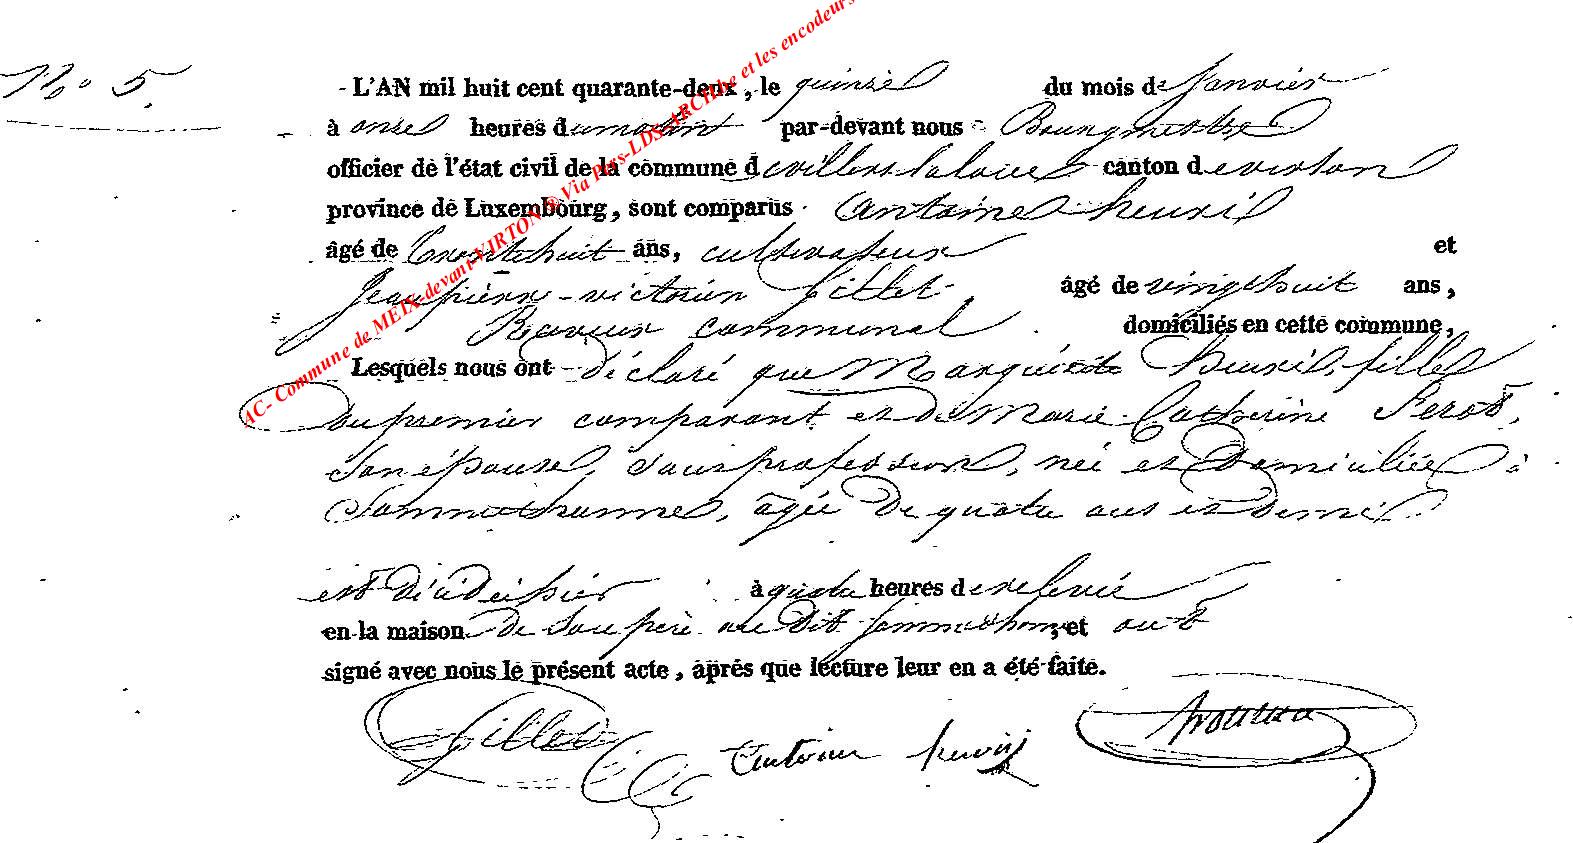 No 5.
L'AN mil huit cent quarante-deux, le quinze du mois de Janvier
à onze heures du matin par-devant nous Bourgmestre
officier de l'état civil de la commune de villers la loue canton de virton
province de Luxembourg, sont comparus Antoine henri
âgé de trente huit ans, cultivateur et
Jean pierre-victorien Gillet âgé de vingt huit ans,
Receveur communal domiciliés en cette commune,
Lesquels nous ont déclaré que Marguérite Henri, fille
du premier comparant et de Marie Catherine Perot,
son épouse, sans profession, née et domiciliée à
Sommethonne, agée de quatre ans et demi
est décédée hier à quatre heures de relevée
en la maison de son père au dit Sommethonne, et ont
signé avec nous le présent acte, après que lecture leur en a été faite.
Gillet Antoine henri
AC- Commune de MEIX-devant-VIRTON @ Via Pays-LDS-ARCH.be et les encodeurs